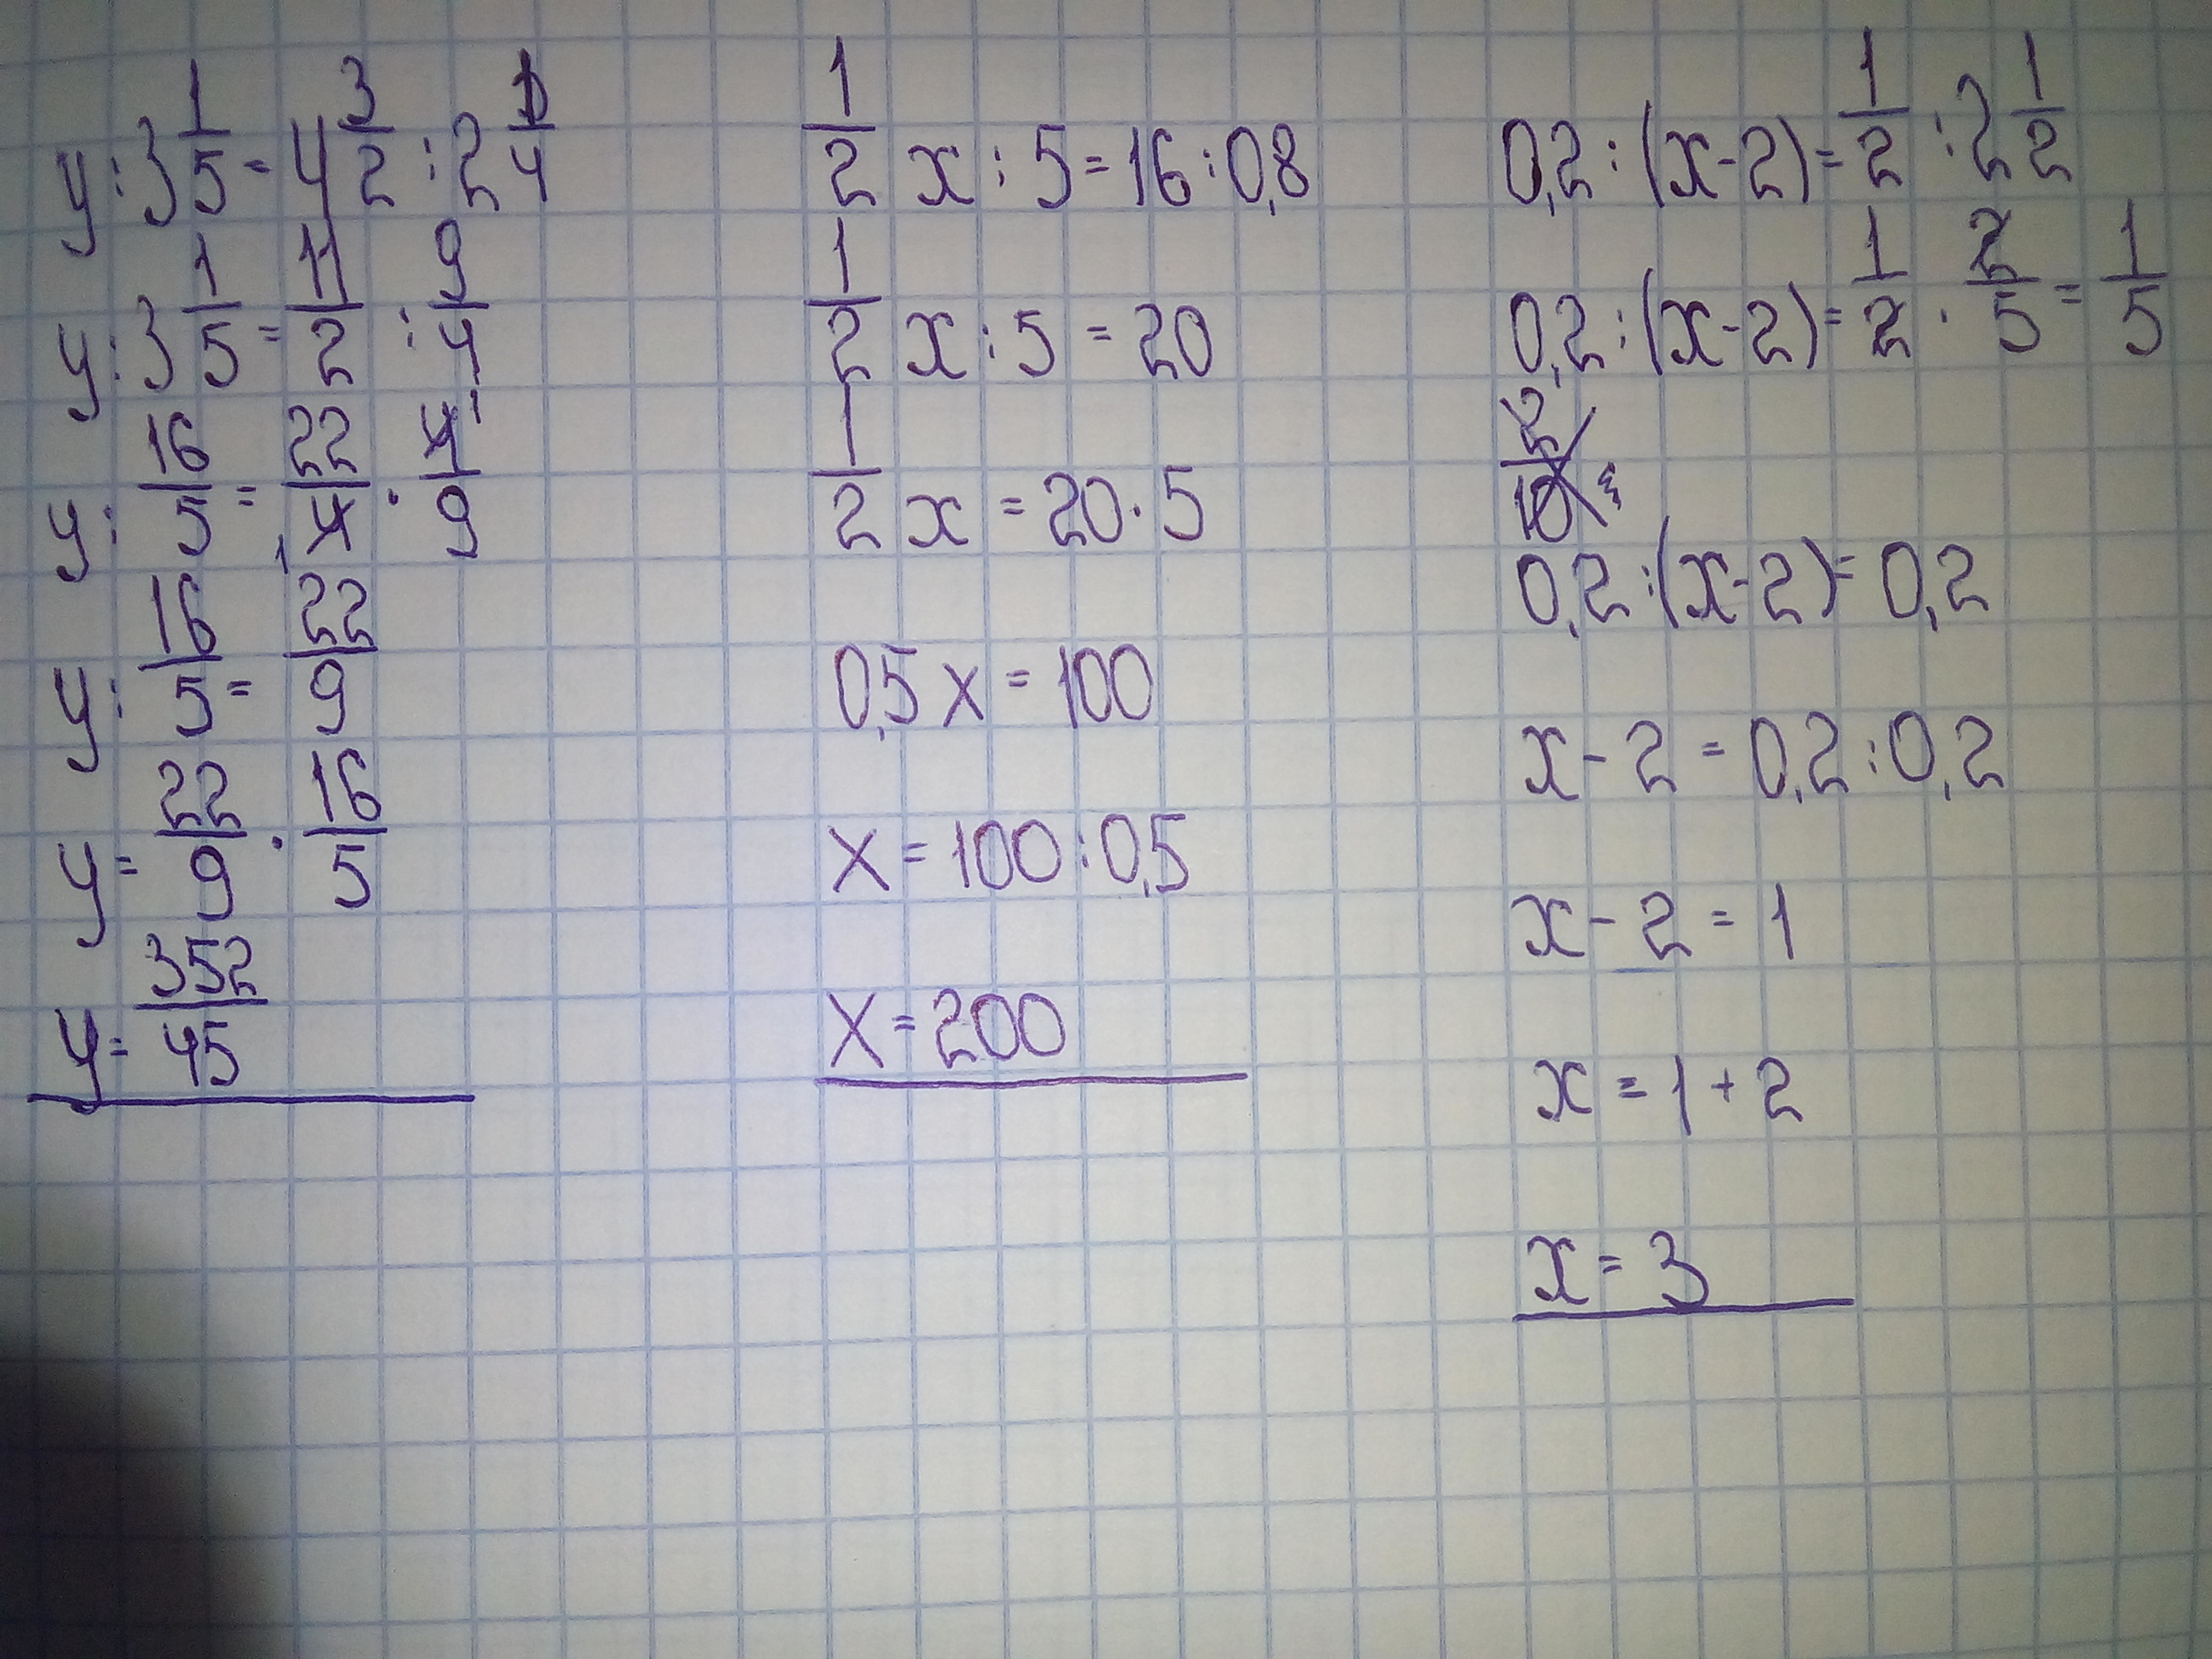 y : 3 1/5 = 4 3/2 : 2 1/4
y : 3 1/5 = 11/2 : 9/4
y : 16/5 = 22/4 · 4/9
y : 16/5 = 22/9
y = 22/9 · 16/5
y = 352/45
1/2 x : 5 = 16 : 0,8
1/2 x : 5 = 20
1/2 x = 20 · 5
0,5x = 100
x = 100 : 0,5
x = 200
0,2 : (x - 2) = 1/2 : 2 1/2
0,2 : (x - 2) = 1/2 · 2/5 = 1/5
0,2 : (x - 2) = 0,2
x - 2 = 0,2 : 0,2
x - 2 = 1
x = 1 + 2
x = 3